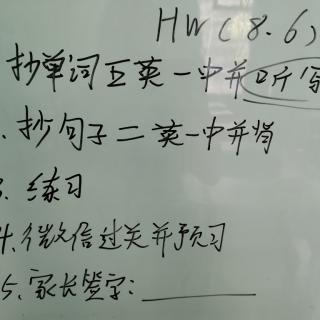 HW(8.6)
抄单词五英一中并听写
2. 抄句子二英一中并背
3. 练习
4. 微信过关并预习
5. 家长签字: